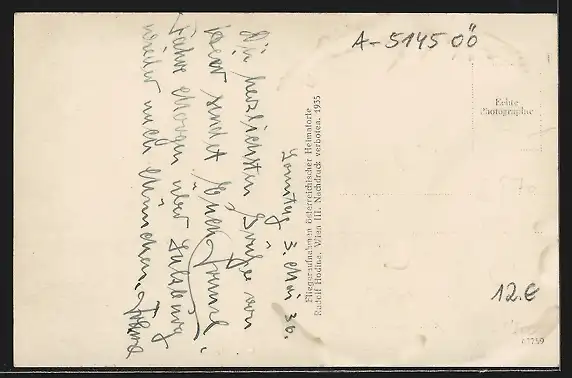 A-5145 OÖ
Echte
Photographie
Sonntag 3. Mai 36.
Die herzlichsten Grüße von
hier sendet Euch
Fahre Morgen über Salzburg
wieder nach München.
Fliegeraufnahmen österreichischer Heimatorte
Rudolf Hodine, Wien III. Nachdruck verboten. 1935
12.€